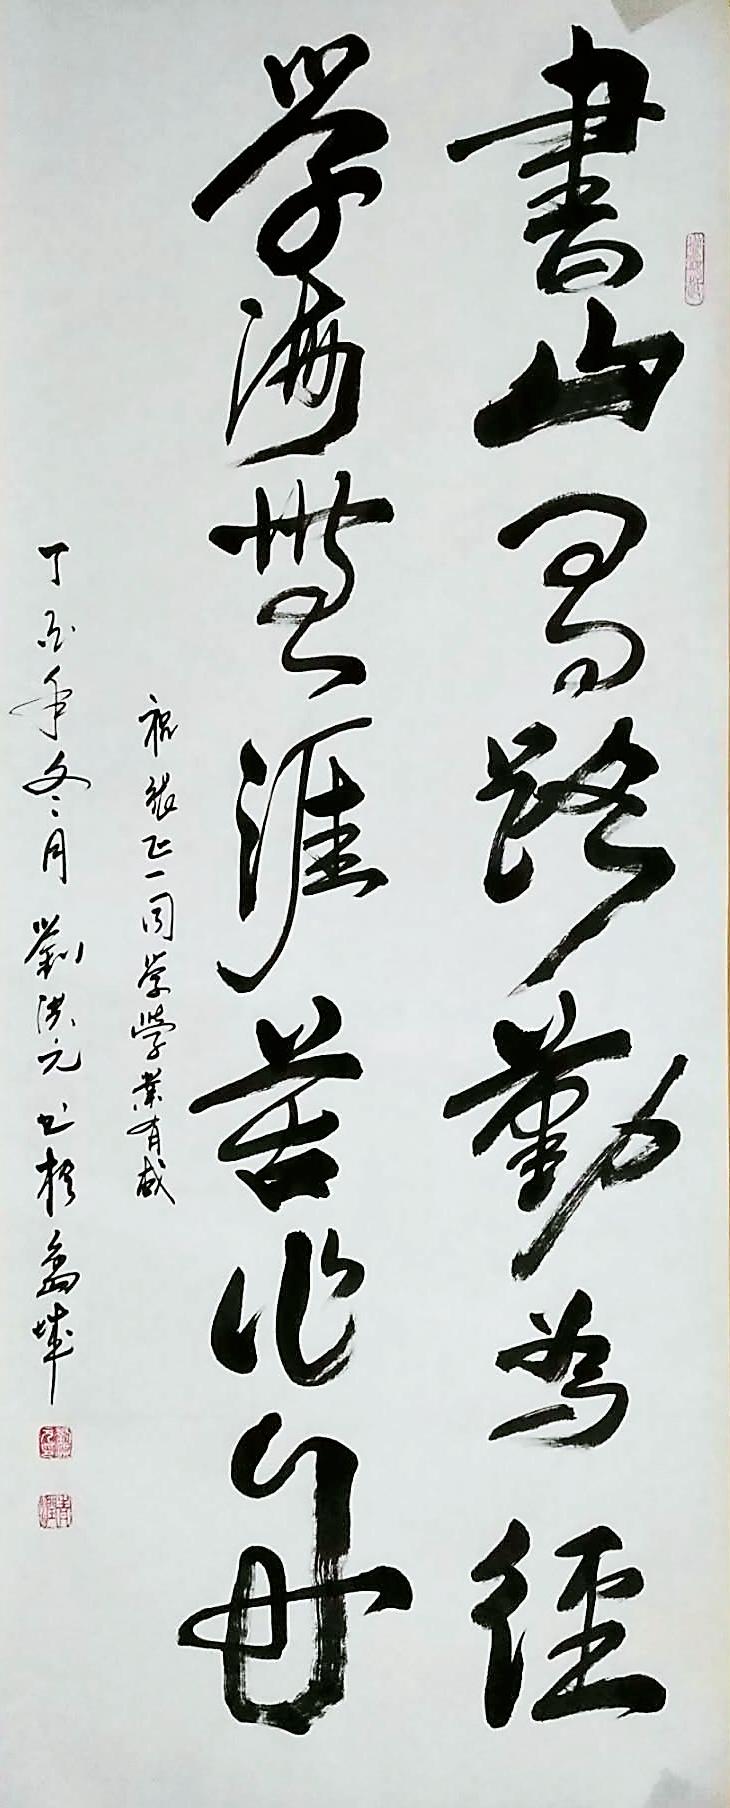 書山有路勤為徑
学海無涯苦作舟
祝張正一同学學業有成
丁酉年冬月劉洪元书於禹城